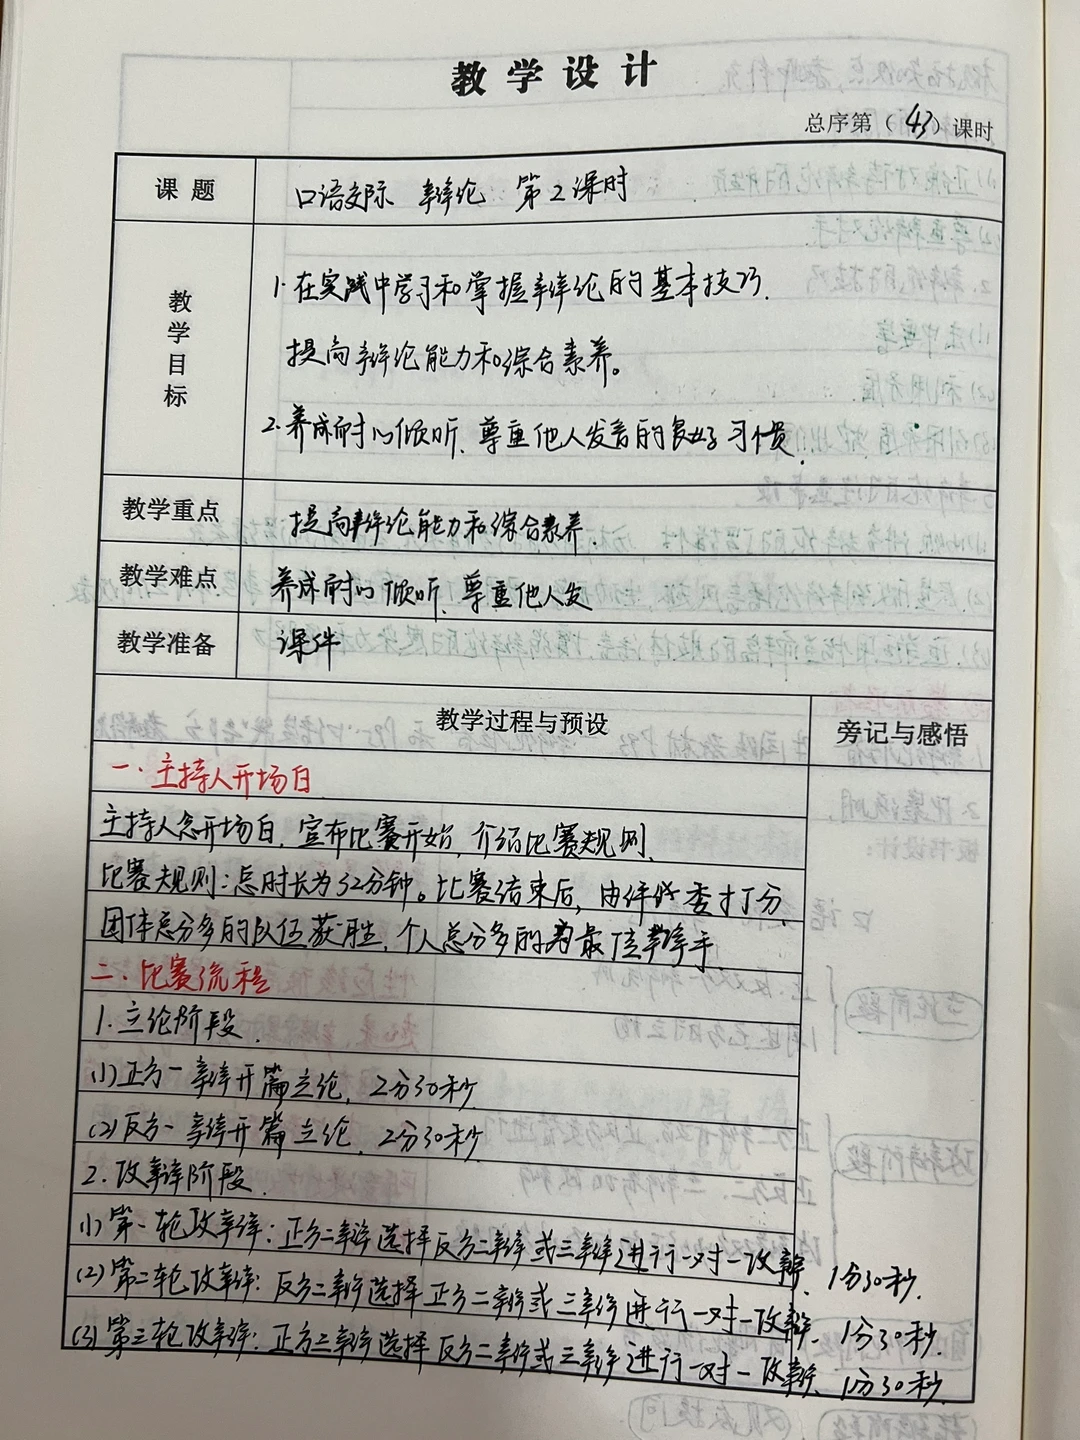 教学设计
总序第（43）课时
课题 口语交际 辩论 第2课时
教学目标
1.在实践中学习和掌握辩论的基本技巧.
提高辩论能力和综合素养。
2.养成耐心倾听、尊重他人发言的良好习惯.
教学重点 提高辩论能力和综合素养.
教学难点 养成耐心倾听、尊重他人发
教学准备 课件
教学过程与预设 旁记与感悟
一、主持人开场白
主持人念开场白,宣布比赛开始,介绍比赛规则、
比赛规则:总时长为32分钟。比赛结束后,由评委打分、
团体总分多的队伍获胜,个人总分多的为最佳辩手
二、比赛流程
1.立论阶段.
(1)正方一辩开篇立论,2分30秒
(2)反方一辩开篇立论、2分30秒
2.攻辩阶段.
(1)第一轮攻辩:正方二辩选择反方二辩或三辩进行一对一攻辩、1分30秒.
(2)第二轮攻辩:反方二辩选择正方二辩或三辩进行一对一攻辩、1分30秒.
(3)第三轮攻辩:正方三辩选择反方二辩或三辩进行一对一攻辩、1分30秒.